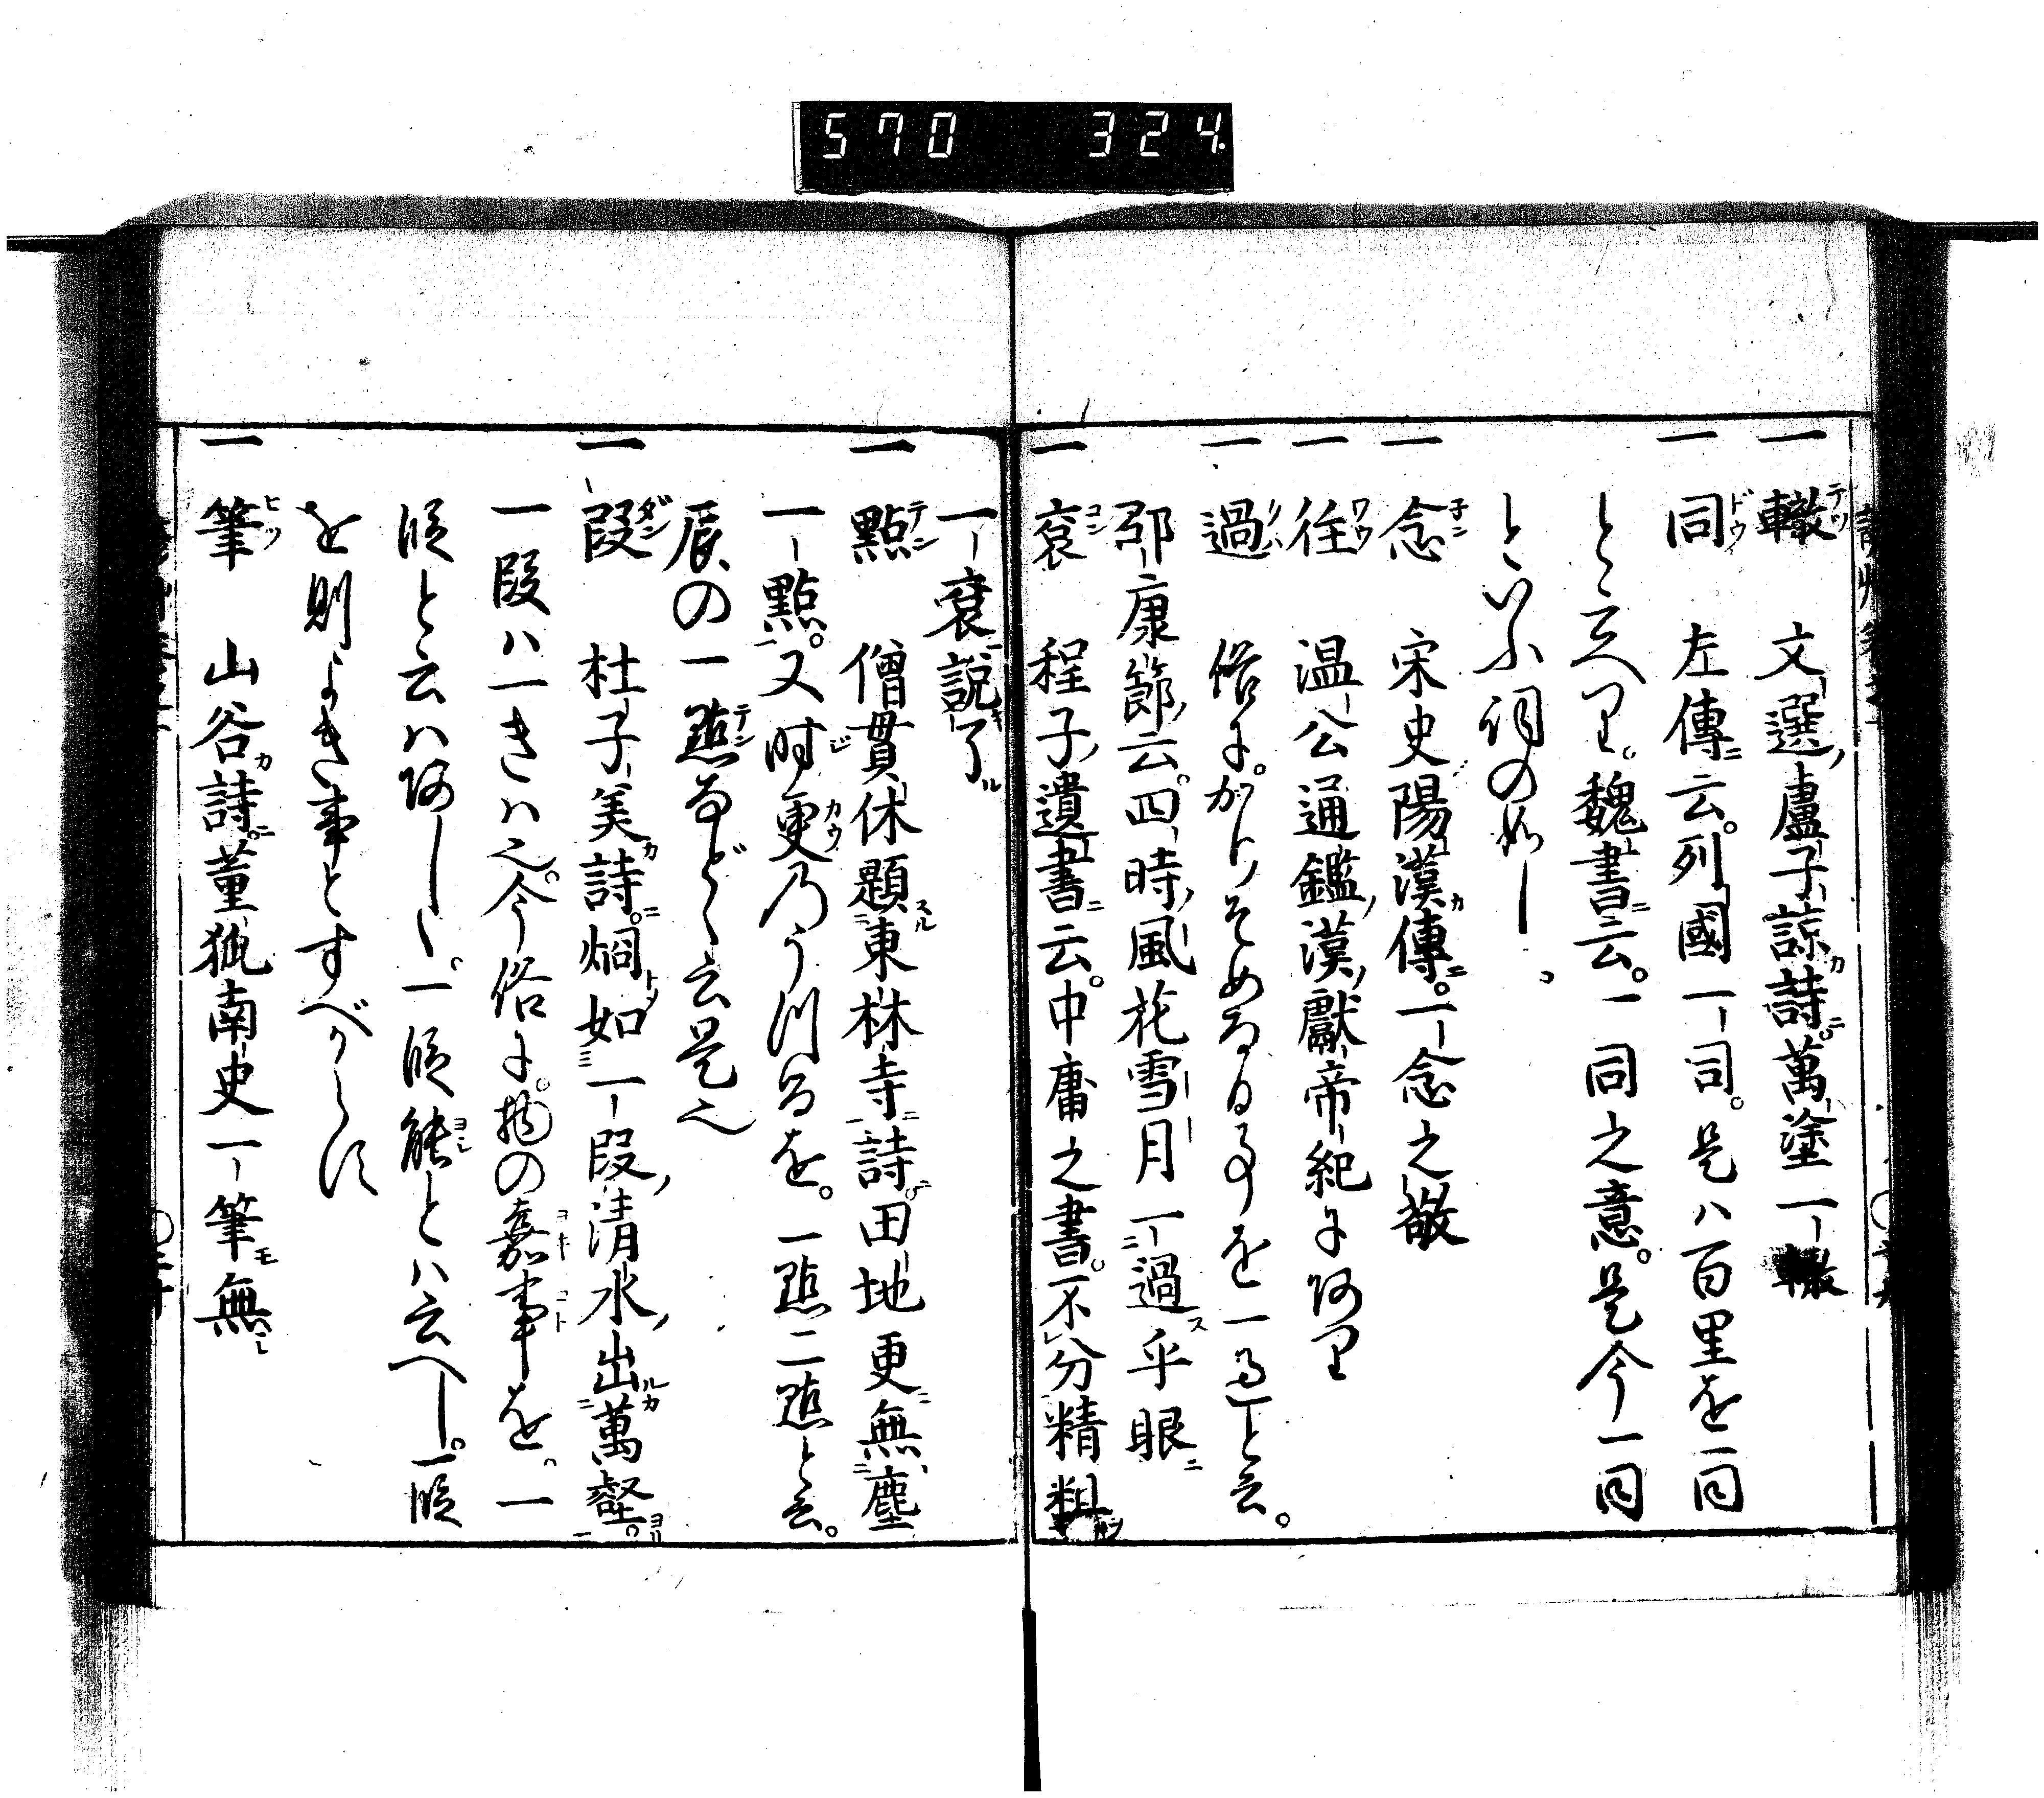 570 324
一轍 文選盧子諒詩。萬塗一轍
一同 左傳云。列國一同。是ハ百里を一同
と云へり。魏書云。一同之意。是今一同
といふ詞の如し。
一念 宋史陽漢傳。一念之敬
一往 温公通鑑漢獻帝紀に阿り
一過 俗に。かりそめなる事を一過と云。
邵康節云。四時風花雪月一過乎眼
一袞 程子遺書云。中庸之書。不分精粗
一袞説了
一點 僧貫休題東林寺詩。田地更無塵
一點。又時更乃うつるを。一點二點と云。
辰の一點などゝ云是也
一段 杜子美詩。烱如一段清水出萬壑。
一段ハ一きハ也。今俗に。物の嘉事を。一
段と云ハ阿しゝ。一段能とハ云へし。一段
を則よき事とすべからす
一筆 山谷詩。董狐南史一筆無